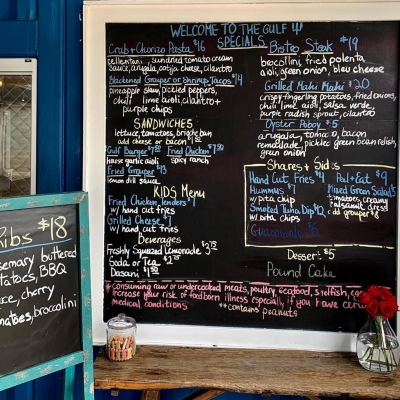 WELCOME TO THE GULF
SPECIALS
Crab + Chorizo Pasta $16
cellentani, sundried tomato cream
sauce, arugula, cotija cheese, cilantro
Blackened Grouper or Shrimp Tacos $14
pineapple slaw, pickled peppers,
chili lime aioli, cilantro +
purple chips
SANDWICHES
lettuce, tomatoes, brioche bun
add cheese or bacon $1
Gulf Burger Fried Chicken
house garlic aioli spicy ranch
Fried Grouper $13
lemon dill sauce
KIDS Menu
Fried Chicken Tenders $7
w/ hand cut fries
Grilled Cheese
w/ hand cut fries
Beverages
Freshly Squeezed Lemonade
Soda or Tea
Dasani
Bistro Steak $19
broccolini, fried polenta,
aioli, green onion, bleu cheese
Grilled Mahi Mahi $20
crispy fingerling potatoes, fried onions,
chili lime aioli, salsa verde,
purple radish sprout, cilantro
Oyster Poboy
arugula, tomato, bacon
remoulade, pickled green bean relish,
green onion
Shares + Sides
Hand Cut Fries $4
Hummus $7
w/ pita chip
Smoked Tuna Dip $12
w/ pita chips
Guacamole
Peel + Eat $9
Mixed Green Salad
tomatoes, creamy
balsamic dress
add grouper $8
Dessert $5
Pound Cake
* Consuming raw or undercooked meats, poultry, seafood, shellfish,
increase your risk of foodborn illness especially if you have
medical conditions **contains peanuts
Ribs $18
rosemary buttered
potatoes, BBQ
cherry
tomatoes, broccolini